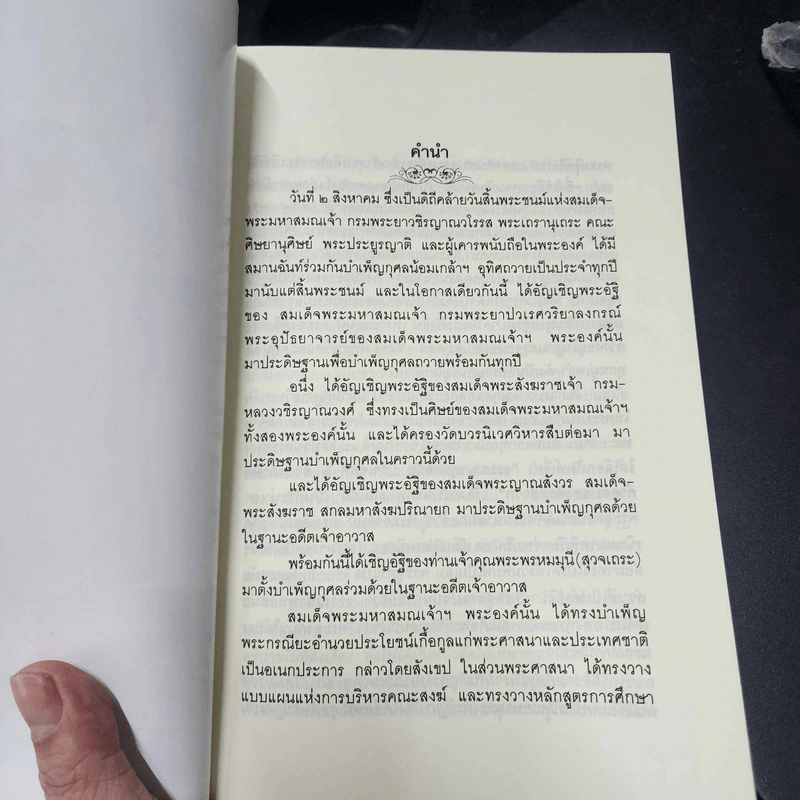 คำนำ
วันที่ ๒ สิงหาคม ซึ่งเป็นดิถีคล้ายวันสิ้นพระชนม์แห่งสมเด็จ-
พระมหาสมณเจ้า กรมพระยาวชิรญาณวโรรส พระเถรานุเถระ คณะ
ศิษยานุศิษย์ พระประยูรญาติ และผู้เคารพนับถือในพระองค์ ได้มี
สมานฉันท์ร่วมกันบำเพ็ญกุศลน้อมเกล้าฯ อุทิศถวายเป็นประจำทุกปี
มานับแต่สิ้นพระชนม์ และในโอกาสเดียวกันนี้ ได้อัญเชิญพระอัฐิ
ของ สมเด็จพระมหาสมณเจ้า กรมพระยาปวเรศวริยาลงกรณ์
พระอุปัธยาจารย์ของสมเด็จพระมหาสมณเจ้าฯ พระองค์นั้น
มาประดิษฐานเพื่อบำเพ็ญกุศลถวายพร้อมกันทุกปี
อนึ่ง ได้อัญเชิญพระอัฐิของสมเด็จพระสังฆราชเจ้า กรม-
หลวงวชิรญาณวงศ์ ซึ่งทรงเป็นศิษย์ของสมเด็จพระมหาสมณเจ้าฯ
ทั้งสองพระองค์นั้น และได้ครองวัดบวรนิเวศวิหารสืบต่อมา มา
ประดิษฐานบำเพ็ญกุศลในคราวนี้ด้วย
และได้อัญเชิญพระอัฐิของสมเด็จพระญาณสังวร สมเด็จ-
พระสังฆราช สกลมหาสังฆปริณายก มาประดิษฐานบำเพ็ญกุศลด้วย
ในฐานะอดีตเจ้าอาวาส
พร้อมกันนี้ได้เชิญอัฐิของท่านเจ้าคุณพระพรหมมุนี(สุวจเถระ)
มาตั้งบำเพ็ญกุศลร่วมด้วยในฐานะอดีตเจ้าอาวาส
สมเด็จพระมหาสมณเจ้าฯ พระองค์นั้น ได้ทรงบำเพ็ญ
พระกรณียะอำนวยประโยชน์เกื้อกูลแก่พระศาสนาและประเทศชาติ
เป็นอเนกประการ กล่าวโดยสังเขป ในส่วนพระศาสนา ได้ทรงวาง
แบบแผนแห่งการบริหารคณะสงฆ์ และทรงวางหลักสูตรการศึกษา